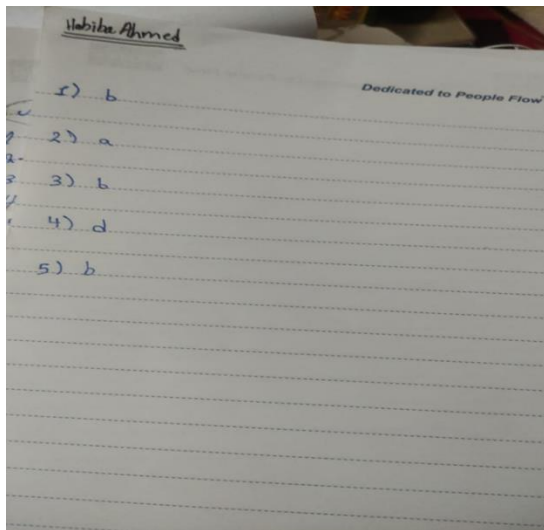 Habiba Ahmed
Dedicated to People Flow
1) b
2) a
3) b
4) d
5) b